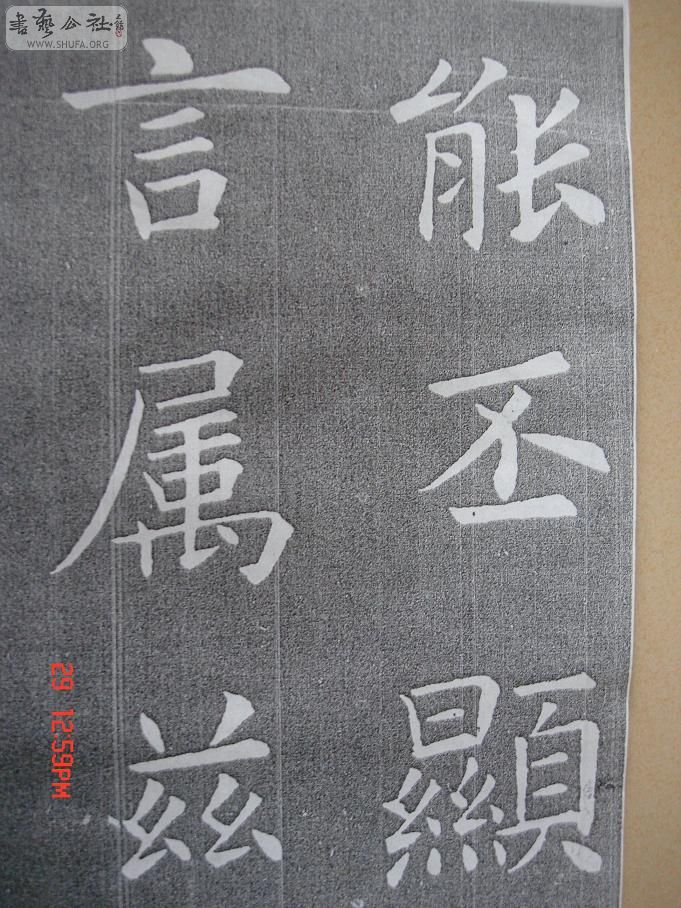 能丕顯
言属兹
書藝公社
WWW.SHUFA.ORG
29 12:59PM